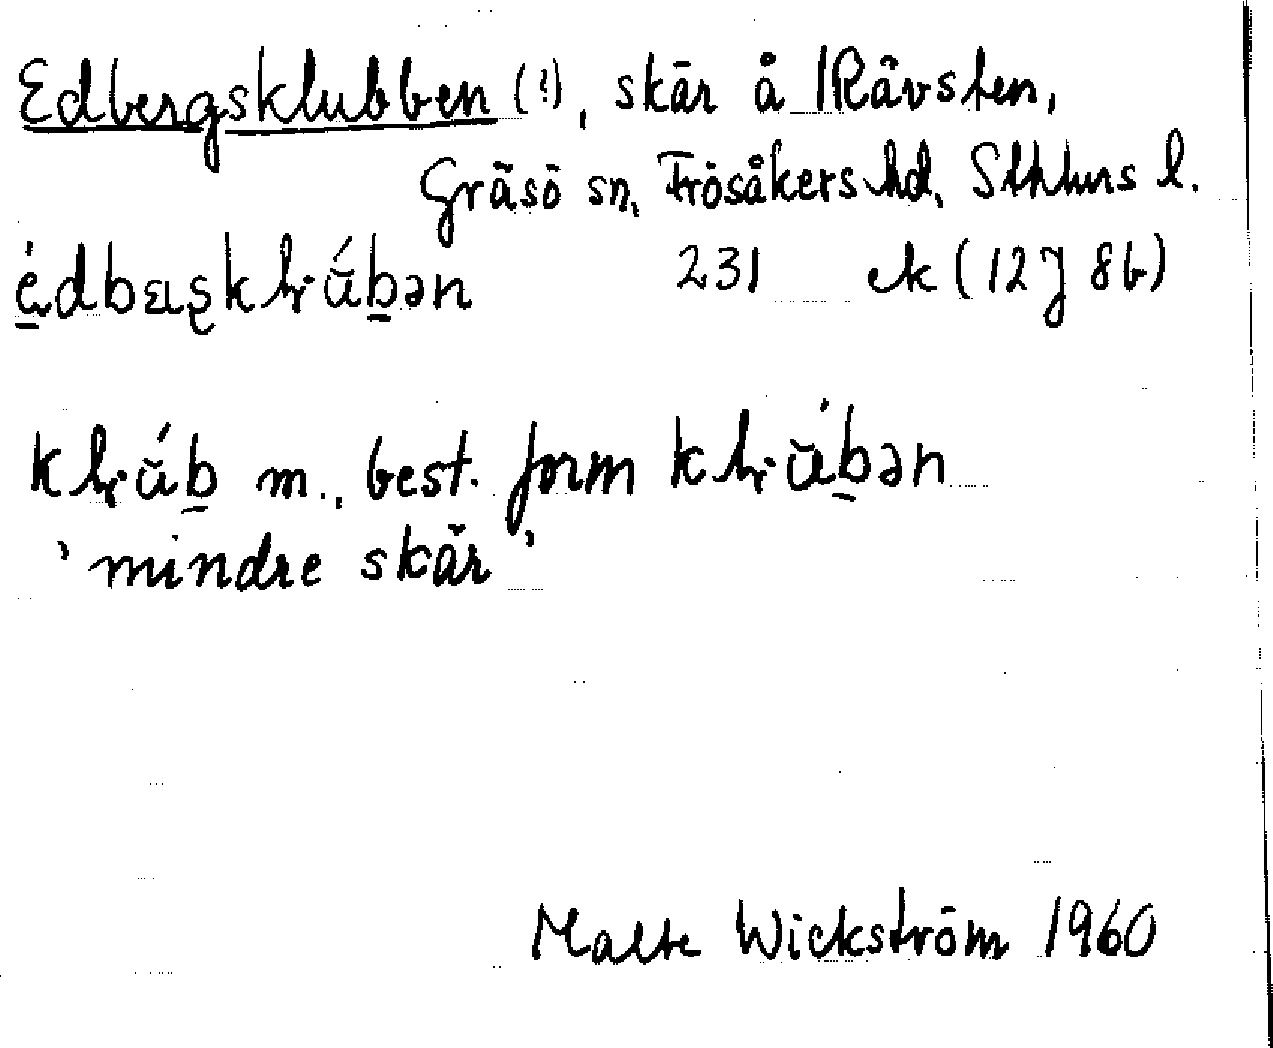 Edbergsklubben (!), skär å Rävsten,
Gräsö sn, Frösåkers hd, Sthlms l.
231 ek (12J 8b)
m., best. form
'mindre skär'
Malte Wickström 1960